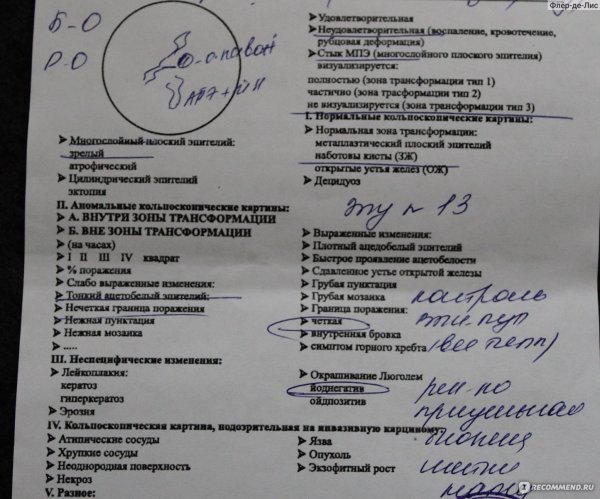 Флёр-де-Лис
Б-О
Р-О
➤ Удовлетворительная
➤ Неудовлетворительная (воспаление, кровотечение,
рубцовая деформация)
➤ Стык МПЭ (многослойного плоского эпителия)
визуализируется:
полностью (зона трансформации тип 1)
частично (зона трасформации тип 2)
не визуализируется (зона трансформации тип 3)
➤ Многослойный плоский эпителий:
зрелый
атрофический
➤ Цилиндрический эпителий
эктопия
I. Нормальные кольпоскопические картины:
➤ Нормальная зона трансформации:
метапластический плоский эпителий
наботовы кисты (ЗЖ)
открытые устья желез (ОЖ)
➤ Децидуоз
II. Аномальные кольпоскопические картины:
➤ А. ВНУТРИ ЗОНЫ ТРАНСФОРМАЦИИ
➤ Б. ВНЕ ЗОНЫ ТРАНСФОРМАЦИИ
➤ (на часах)
➤ I II III IV квадрат
➤ % поражения
➤ Слабо выраженные изменения:
➤ Тонкий ацетобелый эпителий;
➤ Нечеткая граница поражения
➤ Нежная пунктация
➤ Нежная мозаика
➤ .....
№ 13
➤ Выраженные изменения:
➤ Плотный ацедобелый эпителий
➤ Быстрое проявление ацетобелости
➤ Сдавленное устье открытой железы
➤ Грубая пунктация
➤ Грубая мозаика
➤ Граница поражения:
➤ четкая
➤ внутренная бровка
➤ симптом горного хребта
контроль
III. Неспецифические изменения:
➤ Лейкоплакия:
кератоз
гиперкератоз
➤ Эрозия
➤ Окрашивание Люголем
йоднегатив
ойдпозитив
прицельная
биопсия
IV. Кольпоскопическая картина, подозрительная на инвазивную карциному:
➤ Атипические сосуды
➤ Хрупкие сосуды
➤ Неоднородная поверхность
➤ Некроз
➤ Язва
➤ Опухоль
➤ Экзофитный рост
V. Разное:
IRECOMMEND.RU